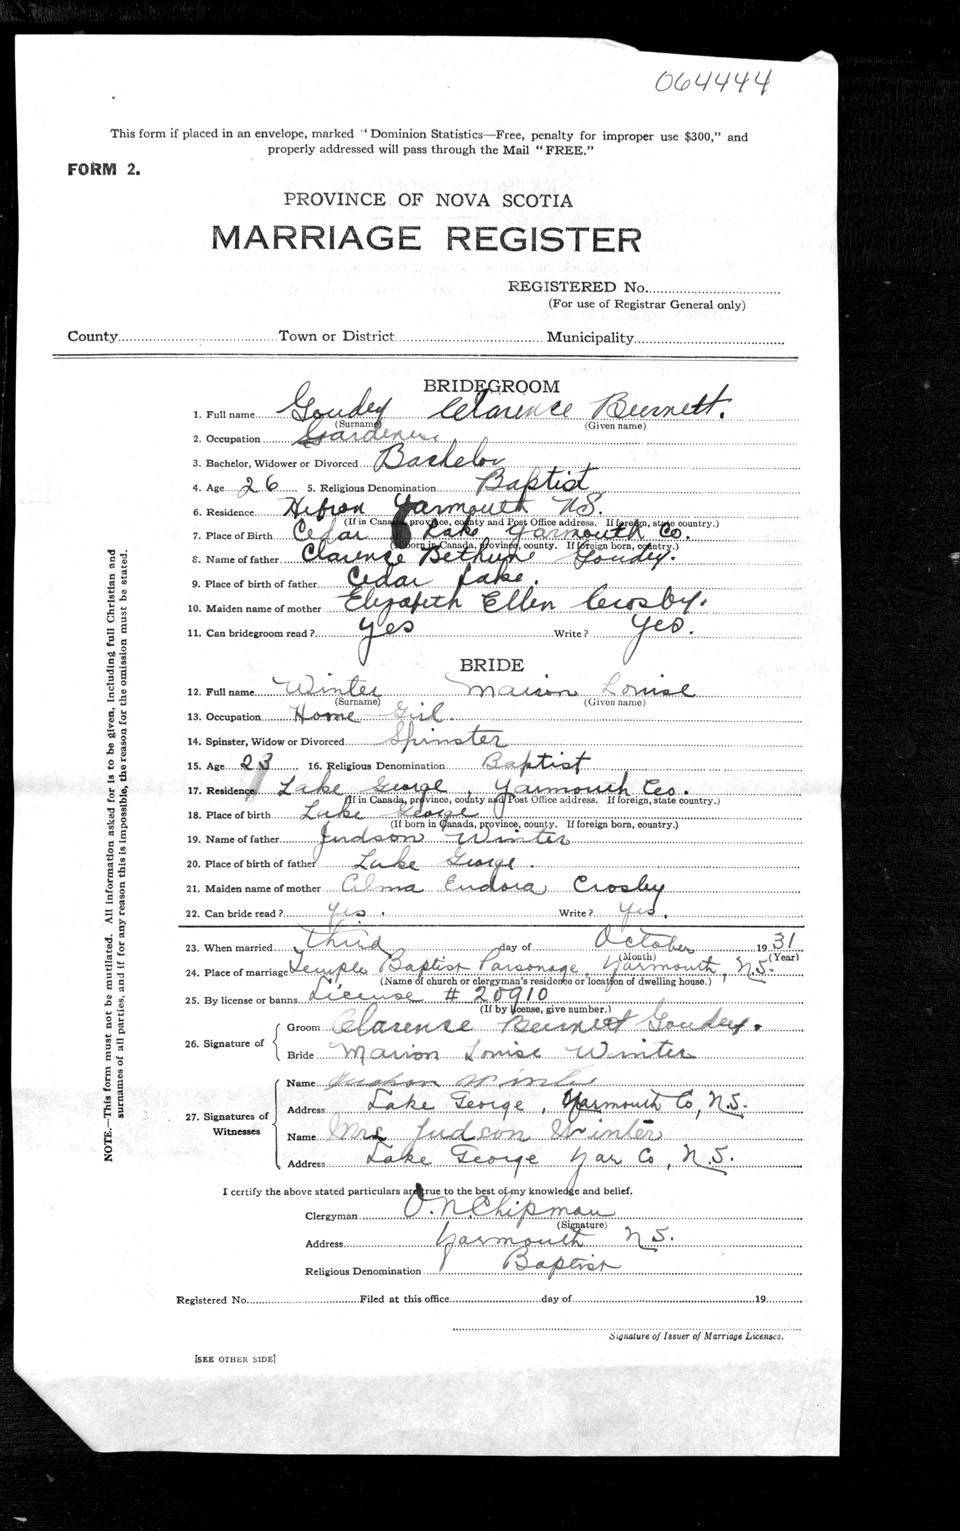 064444
This form if placed in an envelope, marked "Dominion Statistics—Free, penalty for improper use $300," and
properly addressed will pass through the Mail "FREE."
FORM 2.
PROVINCE OF NOVA SCOTIA
MARRIAGE REGISTER
REGISTERED No.
(For use of Registrar General only)
County Town or District Municipality
BRIDEGROOM
1. Full name Goudey Clarence Burnett.
(Surname) (Given name)
2. Occupation Gardener
3. Bachelor, Widower or Divorced Bachelor
4. Age 26 5. Religious Denomination Baptist
6. Residence Hebron Yarmouth N.S.
(If in Canada, province, county and Post Office address. If foreign, state country.)
7. Place of Birth Cedar Lake Yarmouth Co.
(If born in Canada, province, county. If foreign born, country.)
8. Name of father Clarence Goudey.
9. Place of birth of father Cedar Lake.
10. Maiden name of mother Elizabeth Ellen Crosby.
11. Can bridegroom read? yes Write? yes.
BRIDE
12. Full name Winter Marion Louise
(Surname) (Given name)
13. Occupation Home Girl.
14. Spinster, Widow or Divorced Spinster
15. Age 23 16. Religious Denomination Baptist
17. Residence Lake George, Yarmouth Co.
(If in Canada, province, county and Post Office address. If foreign, state country.)
18. Place of birth Lake George
(If born in Canada, province, county. If foreign born, country.)
19. Name of father Judson Winter
20. Place of birth of father Lake George.
21. Maiden name of mother Alma Eudora Crosby
22. Can bride read? Yes. Write? Yes.
23. When married third day of October 1931
(Month) (Year)
24. Place of marriage Temple Baptist Parsonage, Yarmouth, N.S.
(Name of church or clergyman's residence or location of dwelling house.)
25. By license or banns License # 20910
(If by license, give number.)
26. Signature of
Groom Clarence Burnett Goudey.
Bride Marion Louise Winter
27. Signatures of Witnesses
Name Judson Winter
Address Lake George, Yarmouth Co, N.S.
Name Mrs Judson Winter
Address Lake George Yar Co, N.S.
I certify the above stated particulars are true to the best of my knowledge and belief.
Clergyman O.N. Chipman
(Signature)
Address Yarmouth N.S.
Religious Denomination Baptist
Registered No. Filed at this office day of 19
Signature of Issuer of Marriage Licenses.
[SEE OTHER SIDE]
NOTE.—This form must not be mutilated. All information asked for is to be given, including full Christian and
surnames of all parties, and if for any reason this is impossible, the reason for the omission must be stated.